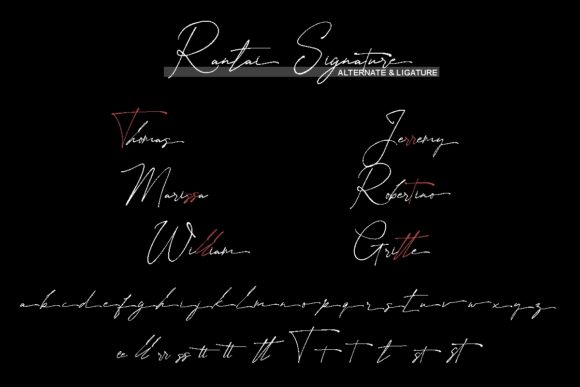 Rantai Signature
ALTERNATE & LIGATURE
Thomas Jerremy
Marissa Robertino
William Gritte
a b c d e f g h i j k l m n o p q r s t u v w x y z
ee ll rr ss tt tt tt T t t t st st